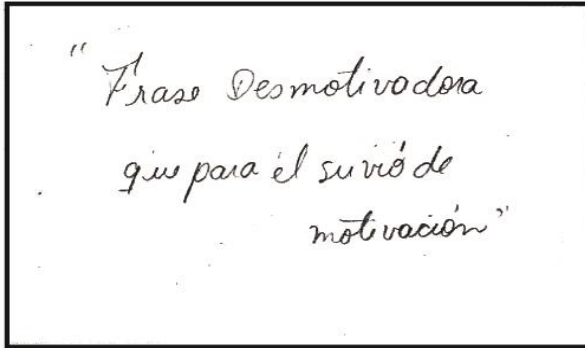 "Frase Desmotivadora
que para él sirvió de
motivación"